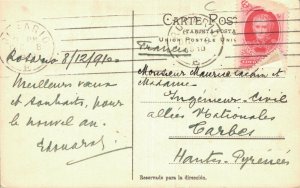 CARTE POST
(TARJETA POSTA
UNION POSTALE UNI
Francia
Rosario 8/12/910
Meilleurs vœux
et souhaits pour
le nouvel an.
Edouard
Monsieur Maurice
et
Madame
Ingénieur-Civil
allées Nationales
Tarbes
Hautes-Pyrénées
Reservado para la dirección.